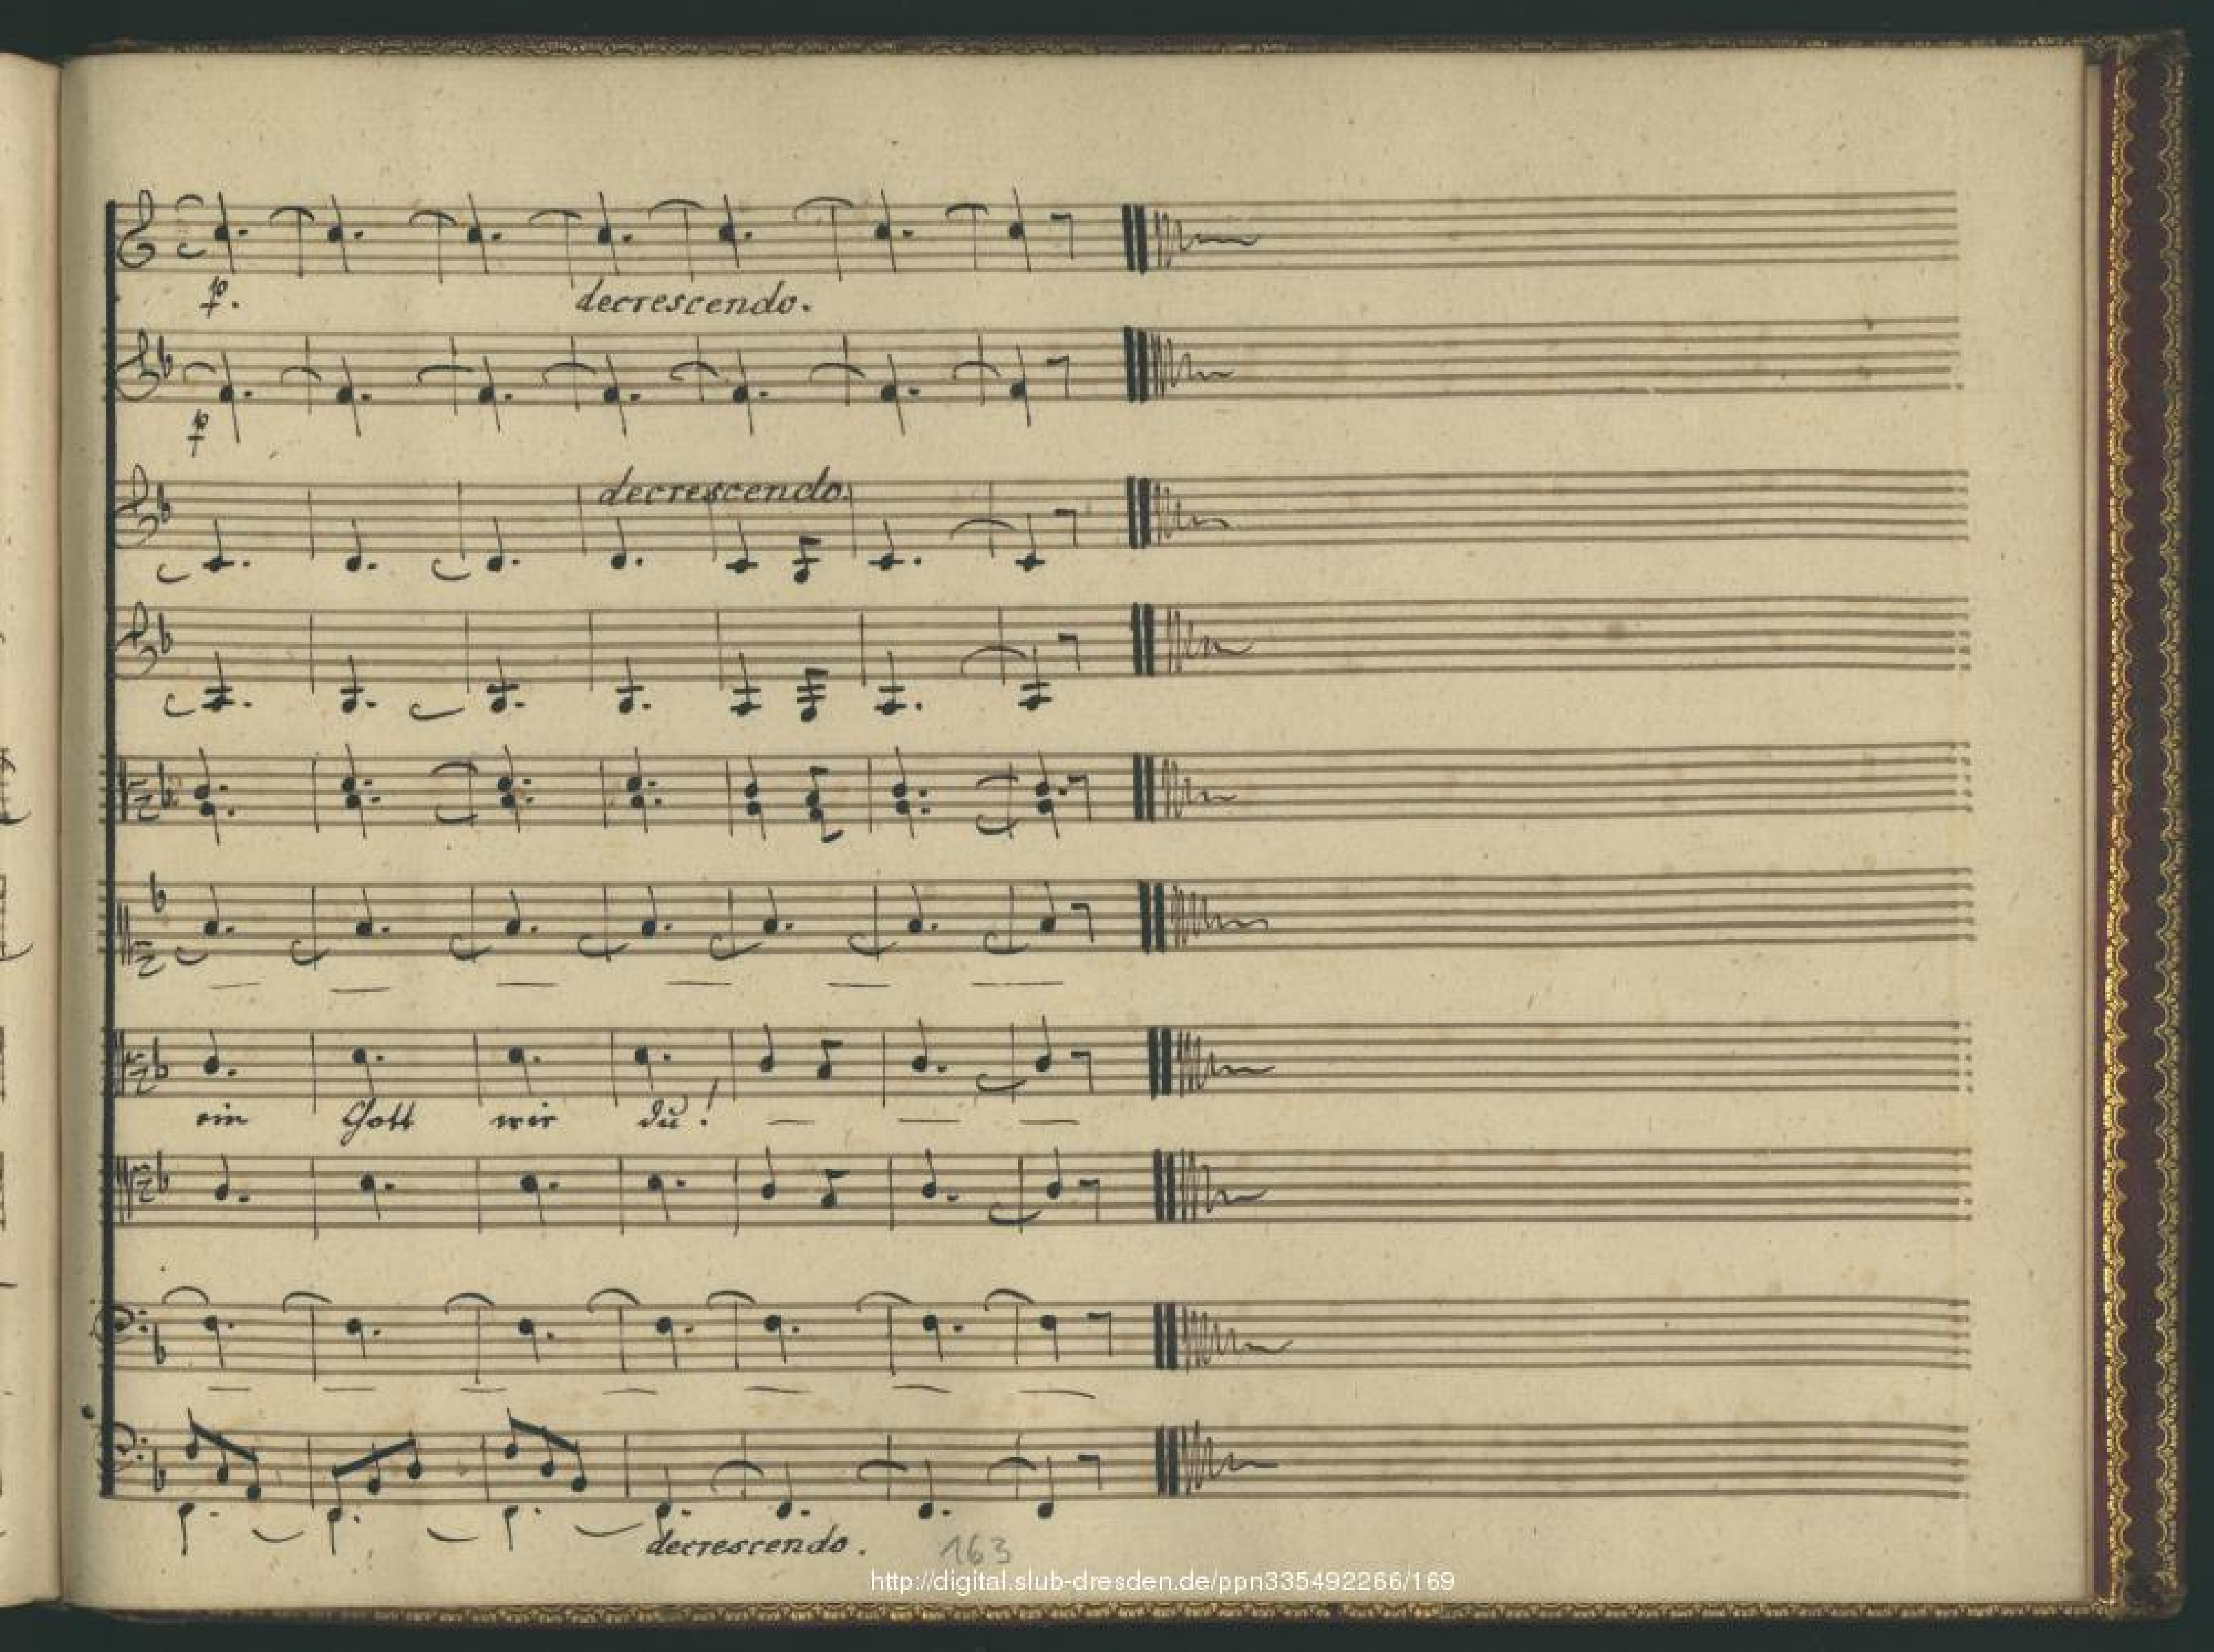 p.
decrescendo.
p
decrescendo.
ein Gott wie du!
decrescendo.
163
http://digital.slub-dresden.de/ppn335492266/169